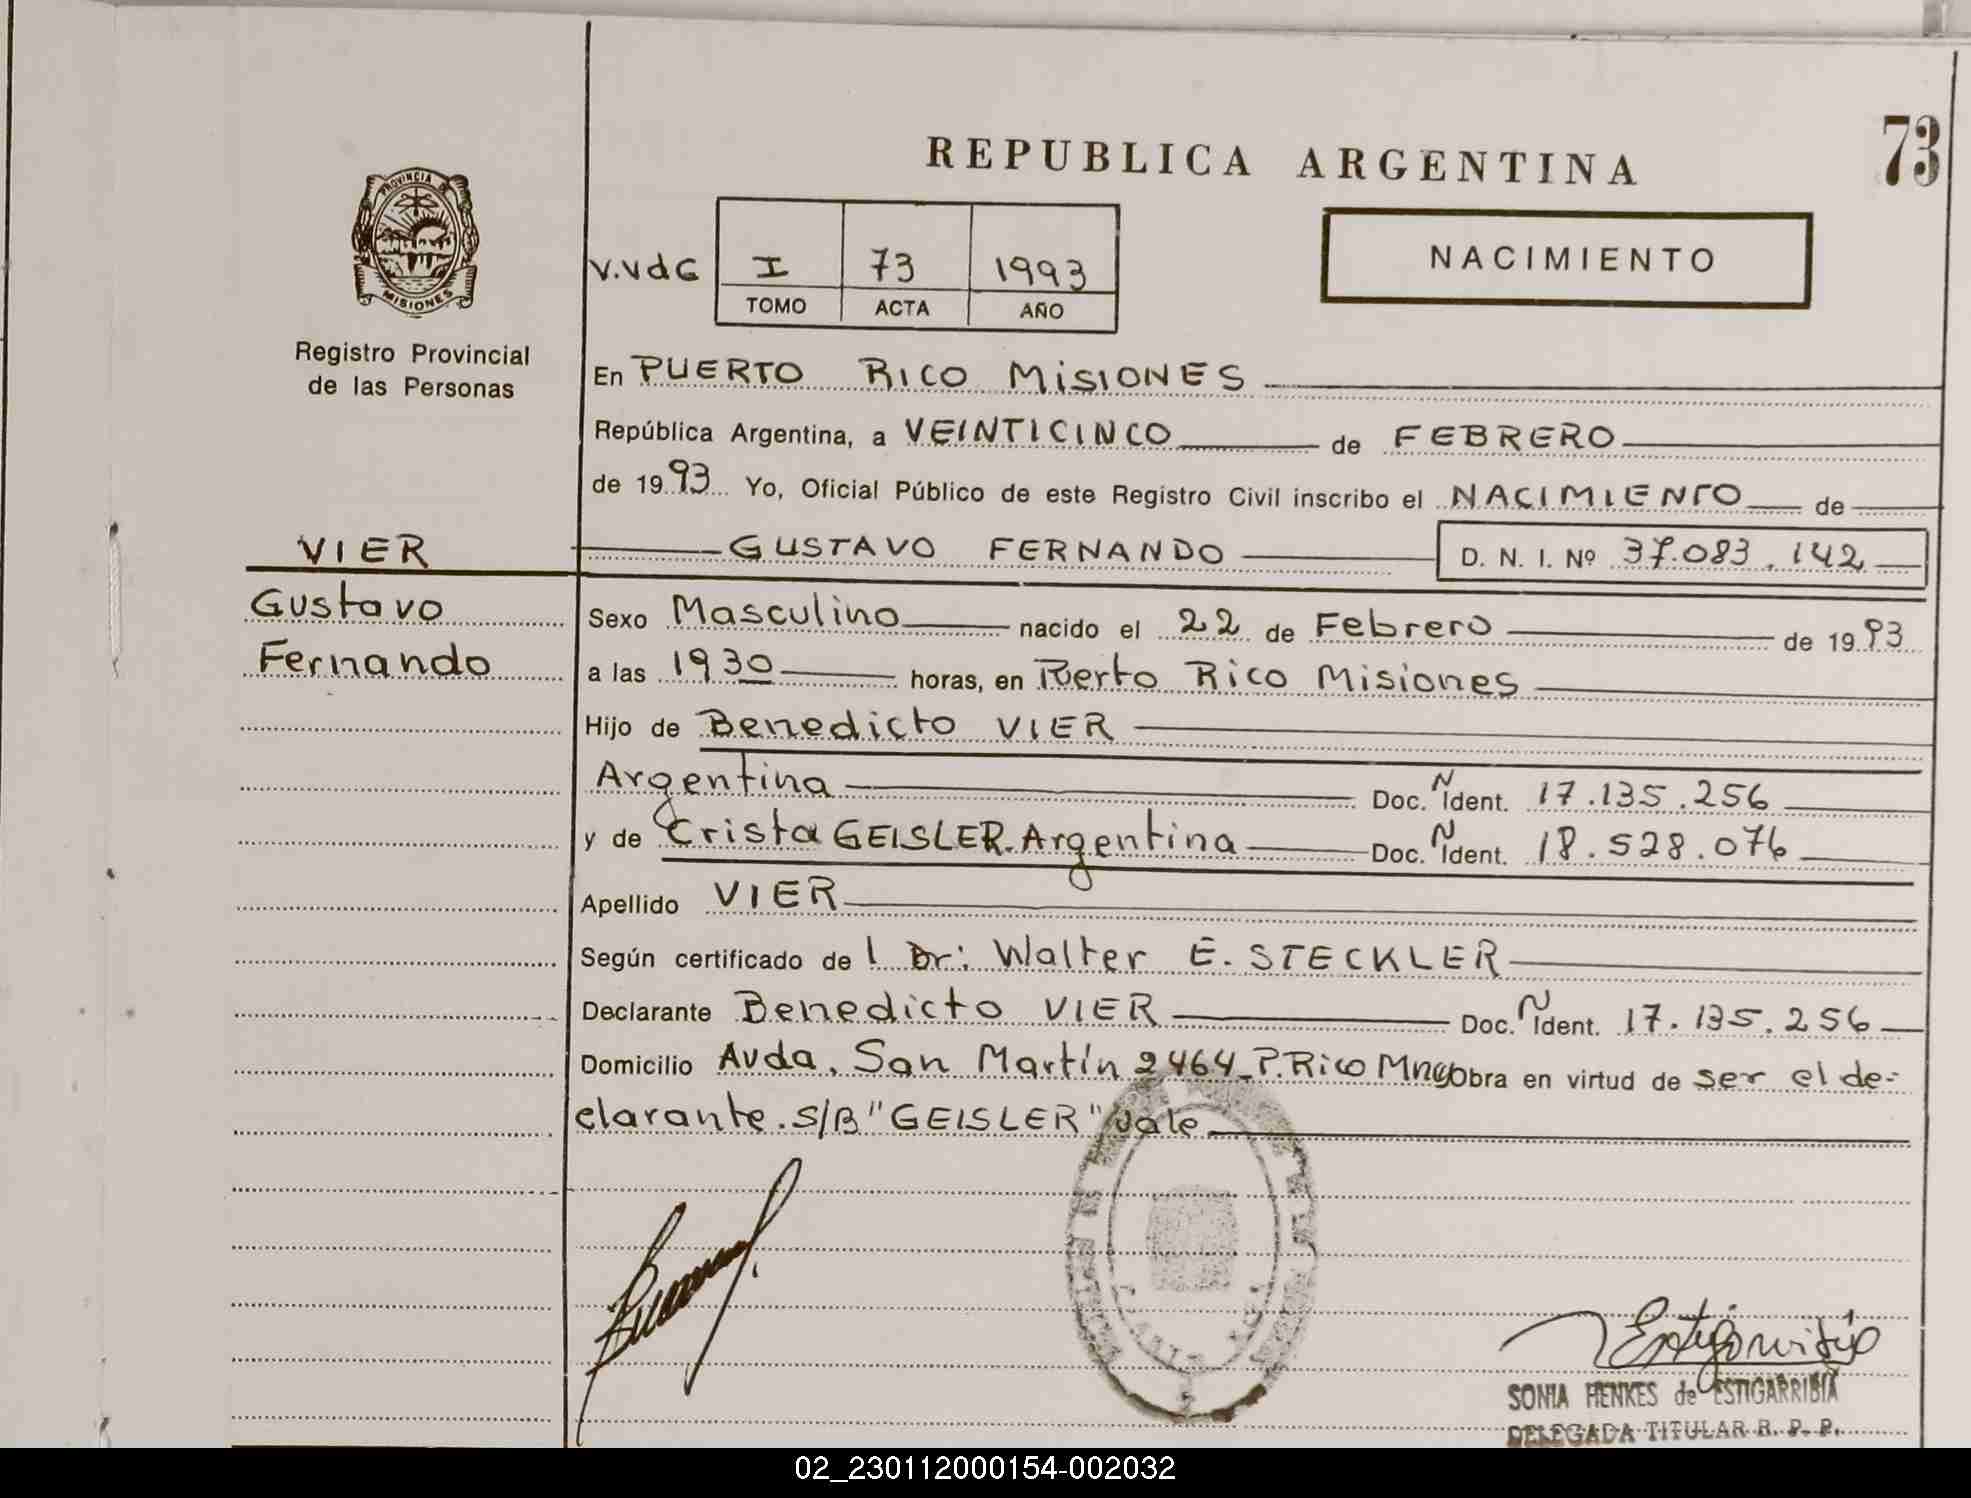 REPUBLICA ARGENTINA
73
PROVINCIA DE
MISIONES
Registro Provincial
de las Personas
V.VdG I 73 1993
TOMO ACTA AÑO
NACIMIENTO
En PUERTO RICO MISIONES
República Argentina, a VEINTICINCO de FEBRERO
de 1993 Yo, Oficial Público de este Registro Civil inscribo el NACIMIENTO de
VIER
GUSTAVO FERNANDO D. N. I. Nº 37.083.142
Gustavo
Fernando
Sexo Masculino nacido el 22 de Febrero de 1993
a las 1930 horas, en Puerto Rico Misiones
Hijo de Benedicto VIER
Argentina Doc. N Ident. 17.135.256
y de Crista GEISLER. Argentina Doc. N Ident. 18.528.076
Apellido VIER
Según certificado de l Dr: Walter E. STECKLER
Declarante Benedicto VIER Doc. N Ident. 17.135.256
Domicilio Avda. San Martín 2464 P. Rico Mnes Obra en virtud de ser el de-
clarante. S/B "GEISLER" vale
SONIA HENKES de ESTIGARRIBIA
DELEGADA TITULAR R. P. P.
02_230112000154-002032